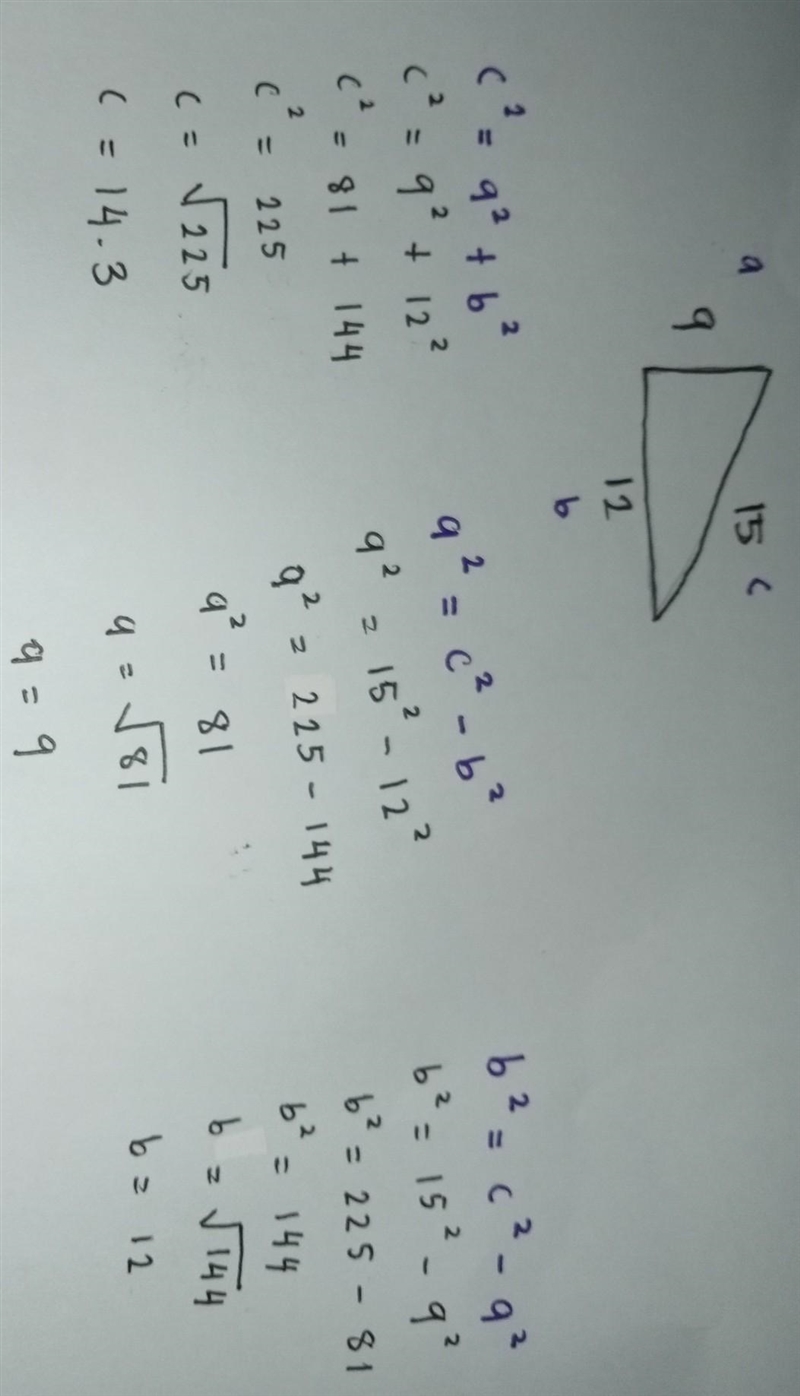 a
9
15 c
12
b
c² = a² + b²
c² = 9² + 12²
c² = 81 + 144
c² = 225
c = √225
c = 14.3
a² = c² - b²
a² = 15² - 12²
a² = 225 - 144
a² = 81
a = √81
a = 9
b² = c² - a²
b² = 15² - 9²
b² = 225 - 81
b² = 144
b = √144
b = 12